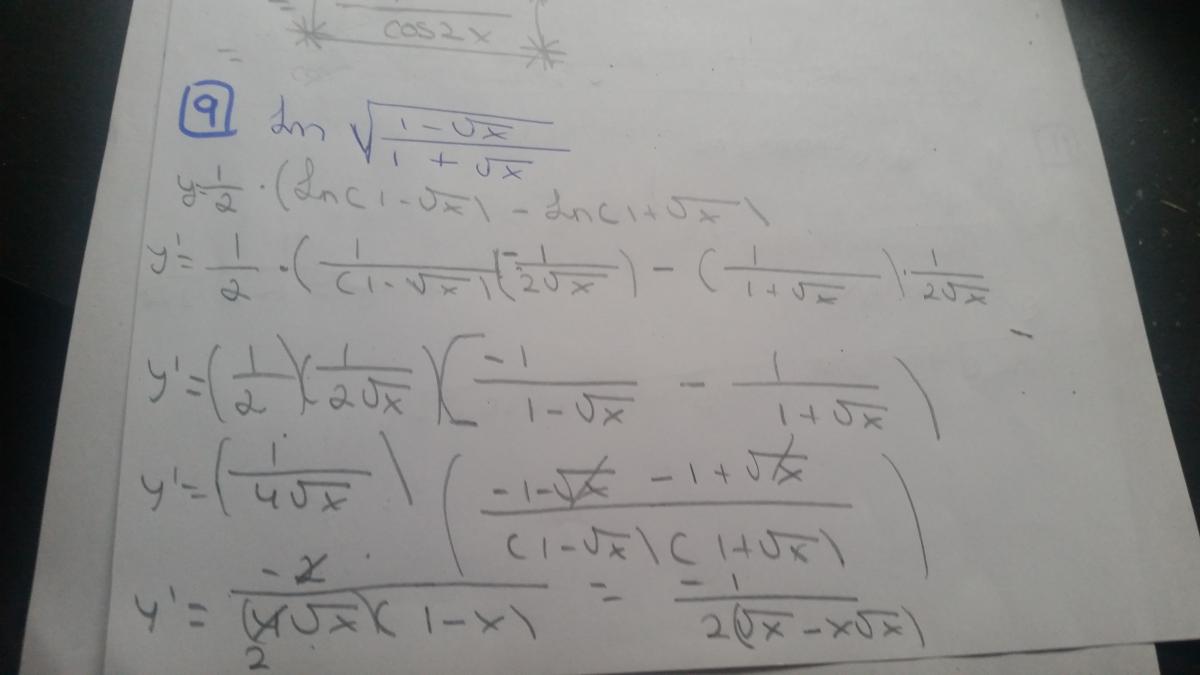 cos2x
=
9 Ln √((1 - √x)/(1 + √x))
y = 1/2 · (Ln(1 - √x) - Ln(1 + √x))
y' = 1/2 · (1/(1 - √x) (-1/(2√x)) - (1/(1 + √x)) · 1/(2√x)
y' = (1/2)(1/(2√x))(-1/(1 - √x) - 1/(1 + √x))
y' = (1/(4√x)) ((-1 - √x - 1 + √x)/((1 - √x)(1 + √x)))
y' = -2/((4√x)(1 - x)) = -1/(2(√x - x√x))
2